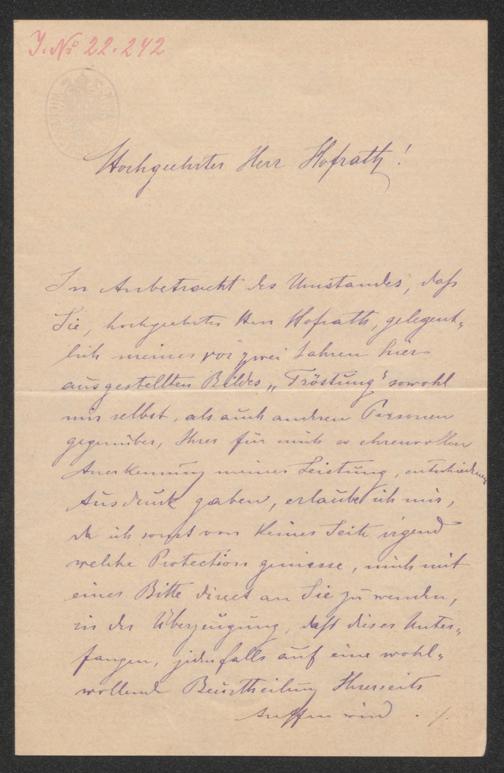 J. No 22.242
Hochgeehrter Herr Hofrath!
In Anbetracht des Umstandes, daß
Sie, hochgeehrter Herr Hofrath, gelegent-
lich meines vor zwei Jahren hier
ausgestellten Bildes „Tröstung“ sowohl
mir selbst, als auch anderen Personen
gegenüber, Ihrer für mich so ehrenvollen
Anerkennung meiner Leistung, entschieden
Ausdruck gaben, erlaube ich mir,
da ich sonst von keiner Seite irgend
welche Protection geniesse, mich mit
einer Bitte direct an Sie zu wenden,
in der Überzeugung, daß dieses Unter-
fangen, jedenfalls auf eine wohl-
wollende Beurtheilung Ihrerseits
treffen wird. ./.